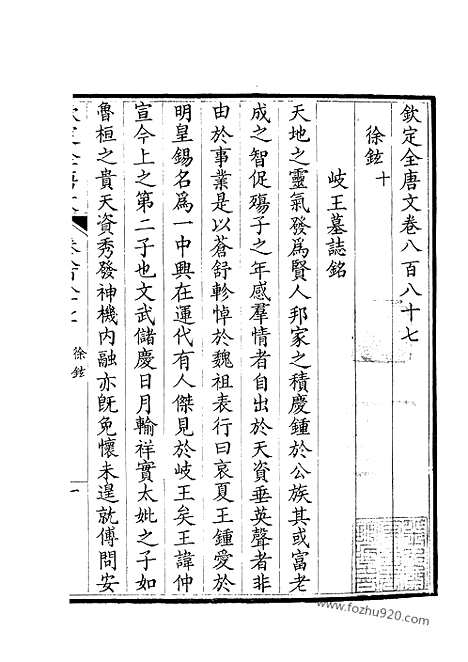 欽定全唐文卷八百八十七
徐鉉十
岐王墓誌銘
天地之靈氣發爲賢人邦家之積慶鍾於公族其或富老
成之智促殤子之年感羣情者自出於天資垂英聲者非
由於事業是以蒼舒軫悼於魏祖表行曰哀夏王鍾愛於
明皇錫名爲一中興在運代有人傑見於岐王矣王諱仲
宣今上之第二子也文武儲慶日月輸祥實太姒之子如
魯桓之貴天資秀發神機內融亦旣免懷未遑就傅問安
徐鉉
一
www.fozhu920.com